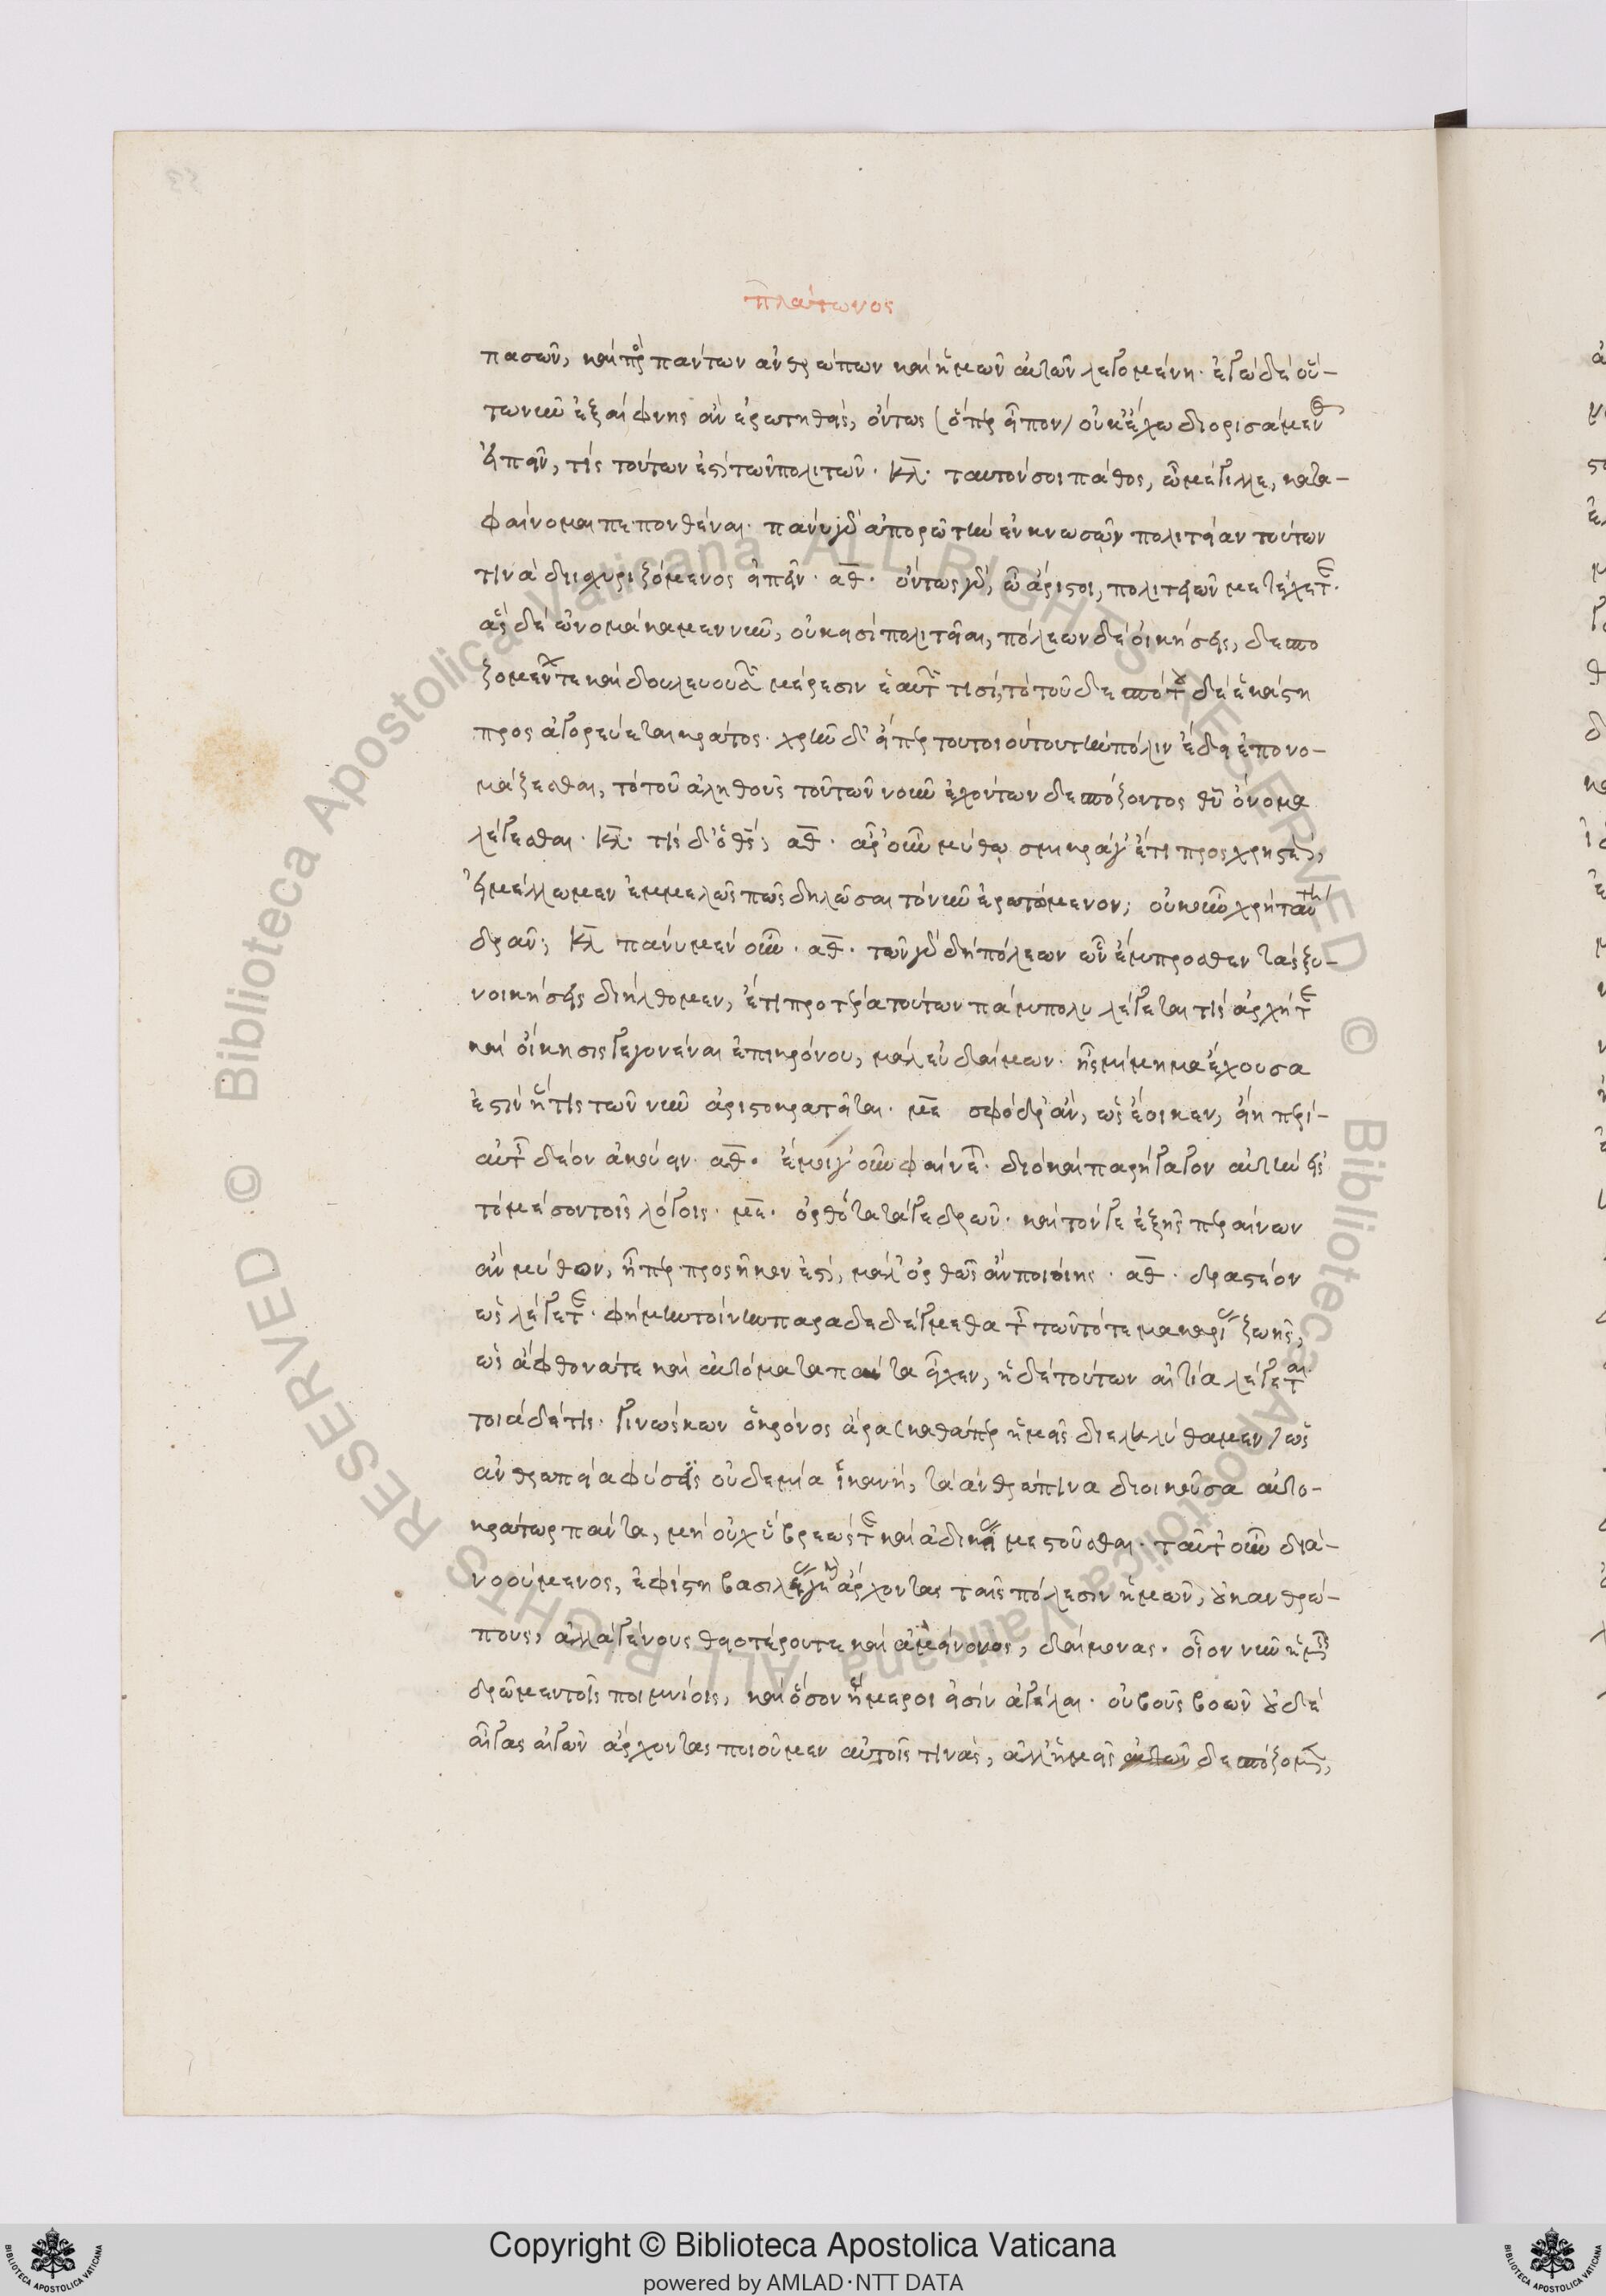 Πλάτωνος
πασῶν, καὶ πρὸς πάντων ἀνθρώπων καὶ ἡμῶν αὐτῶν λεγομένη. ἐγὼ δὲ οὕ-
τω νῦν ἐξαίφνης ἂν ἐρωτηθεὶς, ὄντως (ὅπερ εἶπον) οὐκ ἔχω διορισάμενος
εἰπεῖν, τίς τούτων ἐστὶ τῶν πολιτειῶν. κλ. ταυτόν σοι πάθος, ὦ μέγιλλε, κατα-
φαίνομαι πεπονθέναι. πάνυ γὰρ ἀπορῶ τὴν ἐν κνωσῷ πολιτείαν τούτων
τινὰ διισχυριζόμενος εἰπεῖν. αθ. ὄντως γὰρ, ὦ ἄριστοι, πολιτειῶν μετέχετε.
ἃς δὲ ὠνομάκαμεν νῦν, οὐκ εἰσὶ πολιτεῖαι, πόλεων δὲ οἰκήσεις, δεσπο
ζομένων τε καὶ δουλευουσῶν μέρεσιν ἑαυτῶν τισὶ, τὸ τοῦ δεσπότου δὲ ἑκάστη
προσαγορεύεται κράτος. χρῆν δ' εἴπερ του τοιούτου τὴν πόλιν ἔδει ἐπονο-
μάζεσθαι, τὸ τοῦ ἀληθοῦς τοῦ τῶν νοῦν ἐχόντων δεσπόζοντος θεοῦ ὄνομα
λέγεσθαι. κλ. τίς δ' ὁ θεός; αθ. ἆρ' οὖν μύθῳ σμικρά γ' ἔτι προσχρηστέον,
εἰ μέλλομεν ἐμμελῶς πως δηλῶσαι τὸ νῦν ἐρωτώμενον; οὐκοῦν χρὴ ταύτῃ
δρᾶν; κλ πάνυ μὲν οὖν. αθ. τῶν γὰρ δὴ πόλεων ὧν ἔμπροσθεν τὰς ξυ-
νοικήσεις διήλθομεν, ἔτι προτέρα τούτων πάμπολυ λέγεταί τις ἀρχή τε
καὶ οἴκησις γεγονέναι ἐπὶ κρόνου, μάλ' εὐδαίμων. ἧς μίμημα ἔχουσα
ἐστὶν ἥτις τῶν νῦν ἄριστοκρατεῖται. με σφόδρ' ἂν, ὡς ἔοικεν, εἴη περὶ
αὐτῆς δέον ἀκούειν. αθ. ἔμοιγ' οὖν φαίνεται. διὸ καὶ παρήγαγον αὐτὴν εἰς
τὸ μέσον τοῖς λόγοις. με. ὀρθότατά γε δρῶν. καὶ τόν γε ἑξῆς περαίνων
ἂν μῦθον, εἴπερ προσῆκόν ἐστι, μάλ' ὀρθῶς ἂν ποιοίης. αθ. δραστέον
ὡς λέγετε. φήμην τοίνυν παραδεδέγμεθα τῆς τῶν τότε μακαρίας ζωῆς,
ὡς ἄφθονά τε καὶ αὐτόματα πάντα εἶχεν, ἡ δὲ τούτων αἰτία λέγεται
τοιάδε τις. γινώσκων ὁ κρόνος ἄρα (καθάπερ ἡμεῖς διεληλύθαμεν) ὡς
ἀνθρωπεία φύσις οὐδεμία ἱκανὴ, τὰ ἀνθρώπινα διοικοῦσα αὐτο-
κράτωρ πάντα, μὴ οὐχ ὕβρεώς τε καὶ ἀδικίας μεστοῦσθαι. ταῦτ' οὖν δια-
νοούμενος, ἐφίστη βασιλέας καὶ ἄρχοντας ταῖς πόλεσιν ἡμῶν, οὐκ ἀνθρώ-
πους, ἀλλὰ γένους θειοτέρου τε καὶ ἀμείνονος, δαίμονας. οἷον νῦν ἡμεῖς
δρῶμεν τοῖς ποιμνίοις, καὶ ὅσων ἥμεροι εἰσὶν ἀγέλαι. οὐ βοῦς βοῶν οὐδὲ
αἶγας αἰγῶν ἄρχοντας ποιοῦμεν αὐτοῖς τινὰς, ἀλλ' ἡμεῖς αὐτῶν δεσπόζομεν,